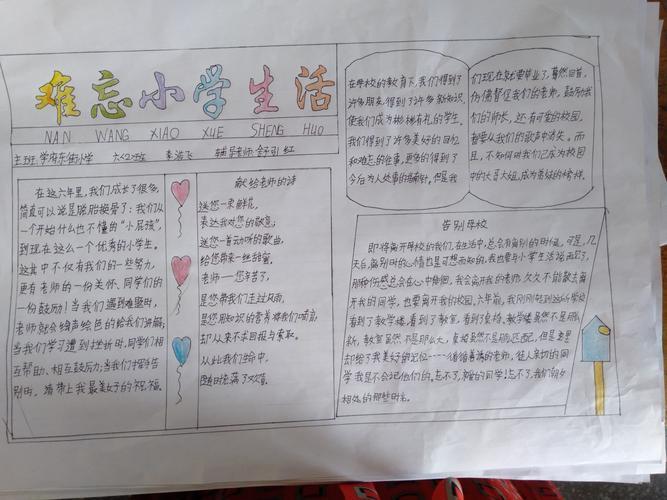 难忘小学生活
NAN WANG XIAO XUE SHENG HUO
主班:学府东街小学 六(2)班 辅导老师:舒引红
在这六年里,我们成长了很多,
简直可以说是脱胎换骨了:我们从
一个开始什么也不懂的“小屁孩”,
到现在这么一个优秀的小学生。
这其中不仅有我们的一些努力,
更有老师的一份关怀、同学们的
一份鼓励!当我们遇到难题时,
老师就会绘声绘色的给我们讲解;
当我们学习遭到挫折时,同学们相
互帮助、相互鼓励;当我们挥手告
别时,请带上我最美好的祝福。
献给老师的诗
送您一束鲜花,
表达我对您的敬意;
送您一首动听的歌曲,
给您带来一丝甜蜜,
老师——您辛苦了,
是您带我们走过风雨,
是您用知识的营养将我们哺育,
却从来不求回报与索取。
从此我们的生命中,
随时充满了欢喜。
在母校的教育下,我们得到了
许多朋友,得到了许多新知识,
使我们成为彬彬有礼的学生。
我们得到了许多美好的回忆
和难忘的往事,更多的得到了
今后为人处事的指南针。但是我
们现在就要毕业了,蓦然回首,
仿佛督促我们的老师,鼓励我
们的师长,还有可爱的校园,
都要从我们的歌声中消失。而
且,不知何时我们已成为校园
中的大哥大姐,成为高好的榜样。
告别母校
即将离开母校的我们,在生活中,总会有离别的时候,可是,几
天后,离别时的心情也是可想而知的,我也要与小学生活说再见了,
那种伤感总会在心中徘徊,我会离开我的老师,久久不能散去离
开我的同学,也要离开我的校园,六年前,我刚刚转到这所学校
看到了教学楼,看到了教室,看到了桌椅,教学楼虽然不是那么
新,教室虽然不是那么大,桌椅虽然不是那么匹配,但是,那里
却给了我美好的记忆——循循善诱的老师,佳人亲切的同
学我是不会忘记他们的。忘不了,亲爱的同学!忘不了,我们朝夕
相处的那些时光。